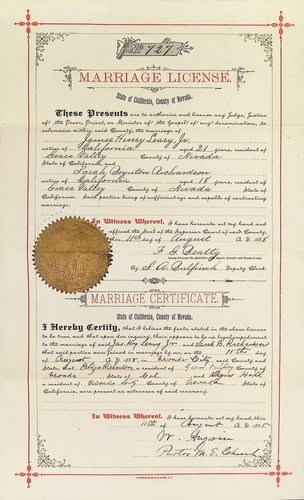 No. 727
MARRIAGE LICENSE.
State of California, County of Nevada.
These Presents are to authorize and license any Judge, Justice
of the Peace, Priest, or Minister of the Gospel of any denomination, to
solemnize within said County, the marriage of
James Henry Leary Jr.
native of California aged 21 years, resident of
Grass Valley County of Nevada
State of California, and
Sarah Boynton Richardson
native of California aged 18 years, resident of
Grass Valley County of Nevada State of
California. Said parties being of sufficient age and capable of contracting
marriage.
In Witness Whereof, I have hereunto set my hand and
affixed the Seal of the Superior Court of said County,
this 11th day of August A.D. 188
F. G. Beatty
By Deputy Clerk
MARRIAGE CERTIFICATE.
State of California, County of Nevada.
I Hereby Certify, that I believe the facts stated in the above license
to be true, and that upon due inquiry, there appears to be no legal impediment
to the marriage of said Jas Hy Leary Jr and Sarah B. Richardson
that said parties were joined in marriage by me, on the 11th day
of August A.D. 188 in Nevada City said County and
State; that a resident of County of
Nevada, State of Cal and Hall
a resident of Nevada City County of Nevada State of
California, were present as witnesses of said ceremony.
In Witness Whereof, I have hereunto set my hand, this
11th of August A.D. 188
W.
Pastor M. E. Church